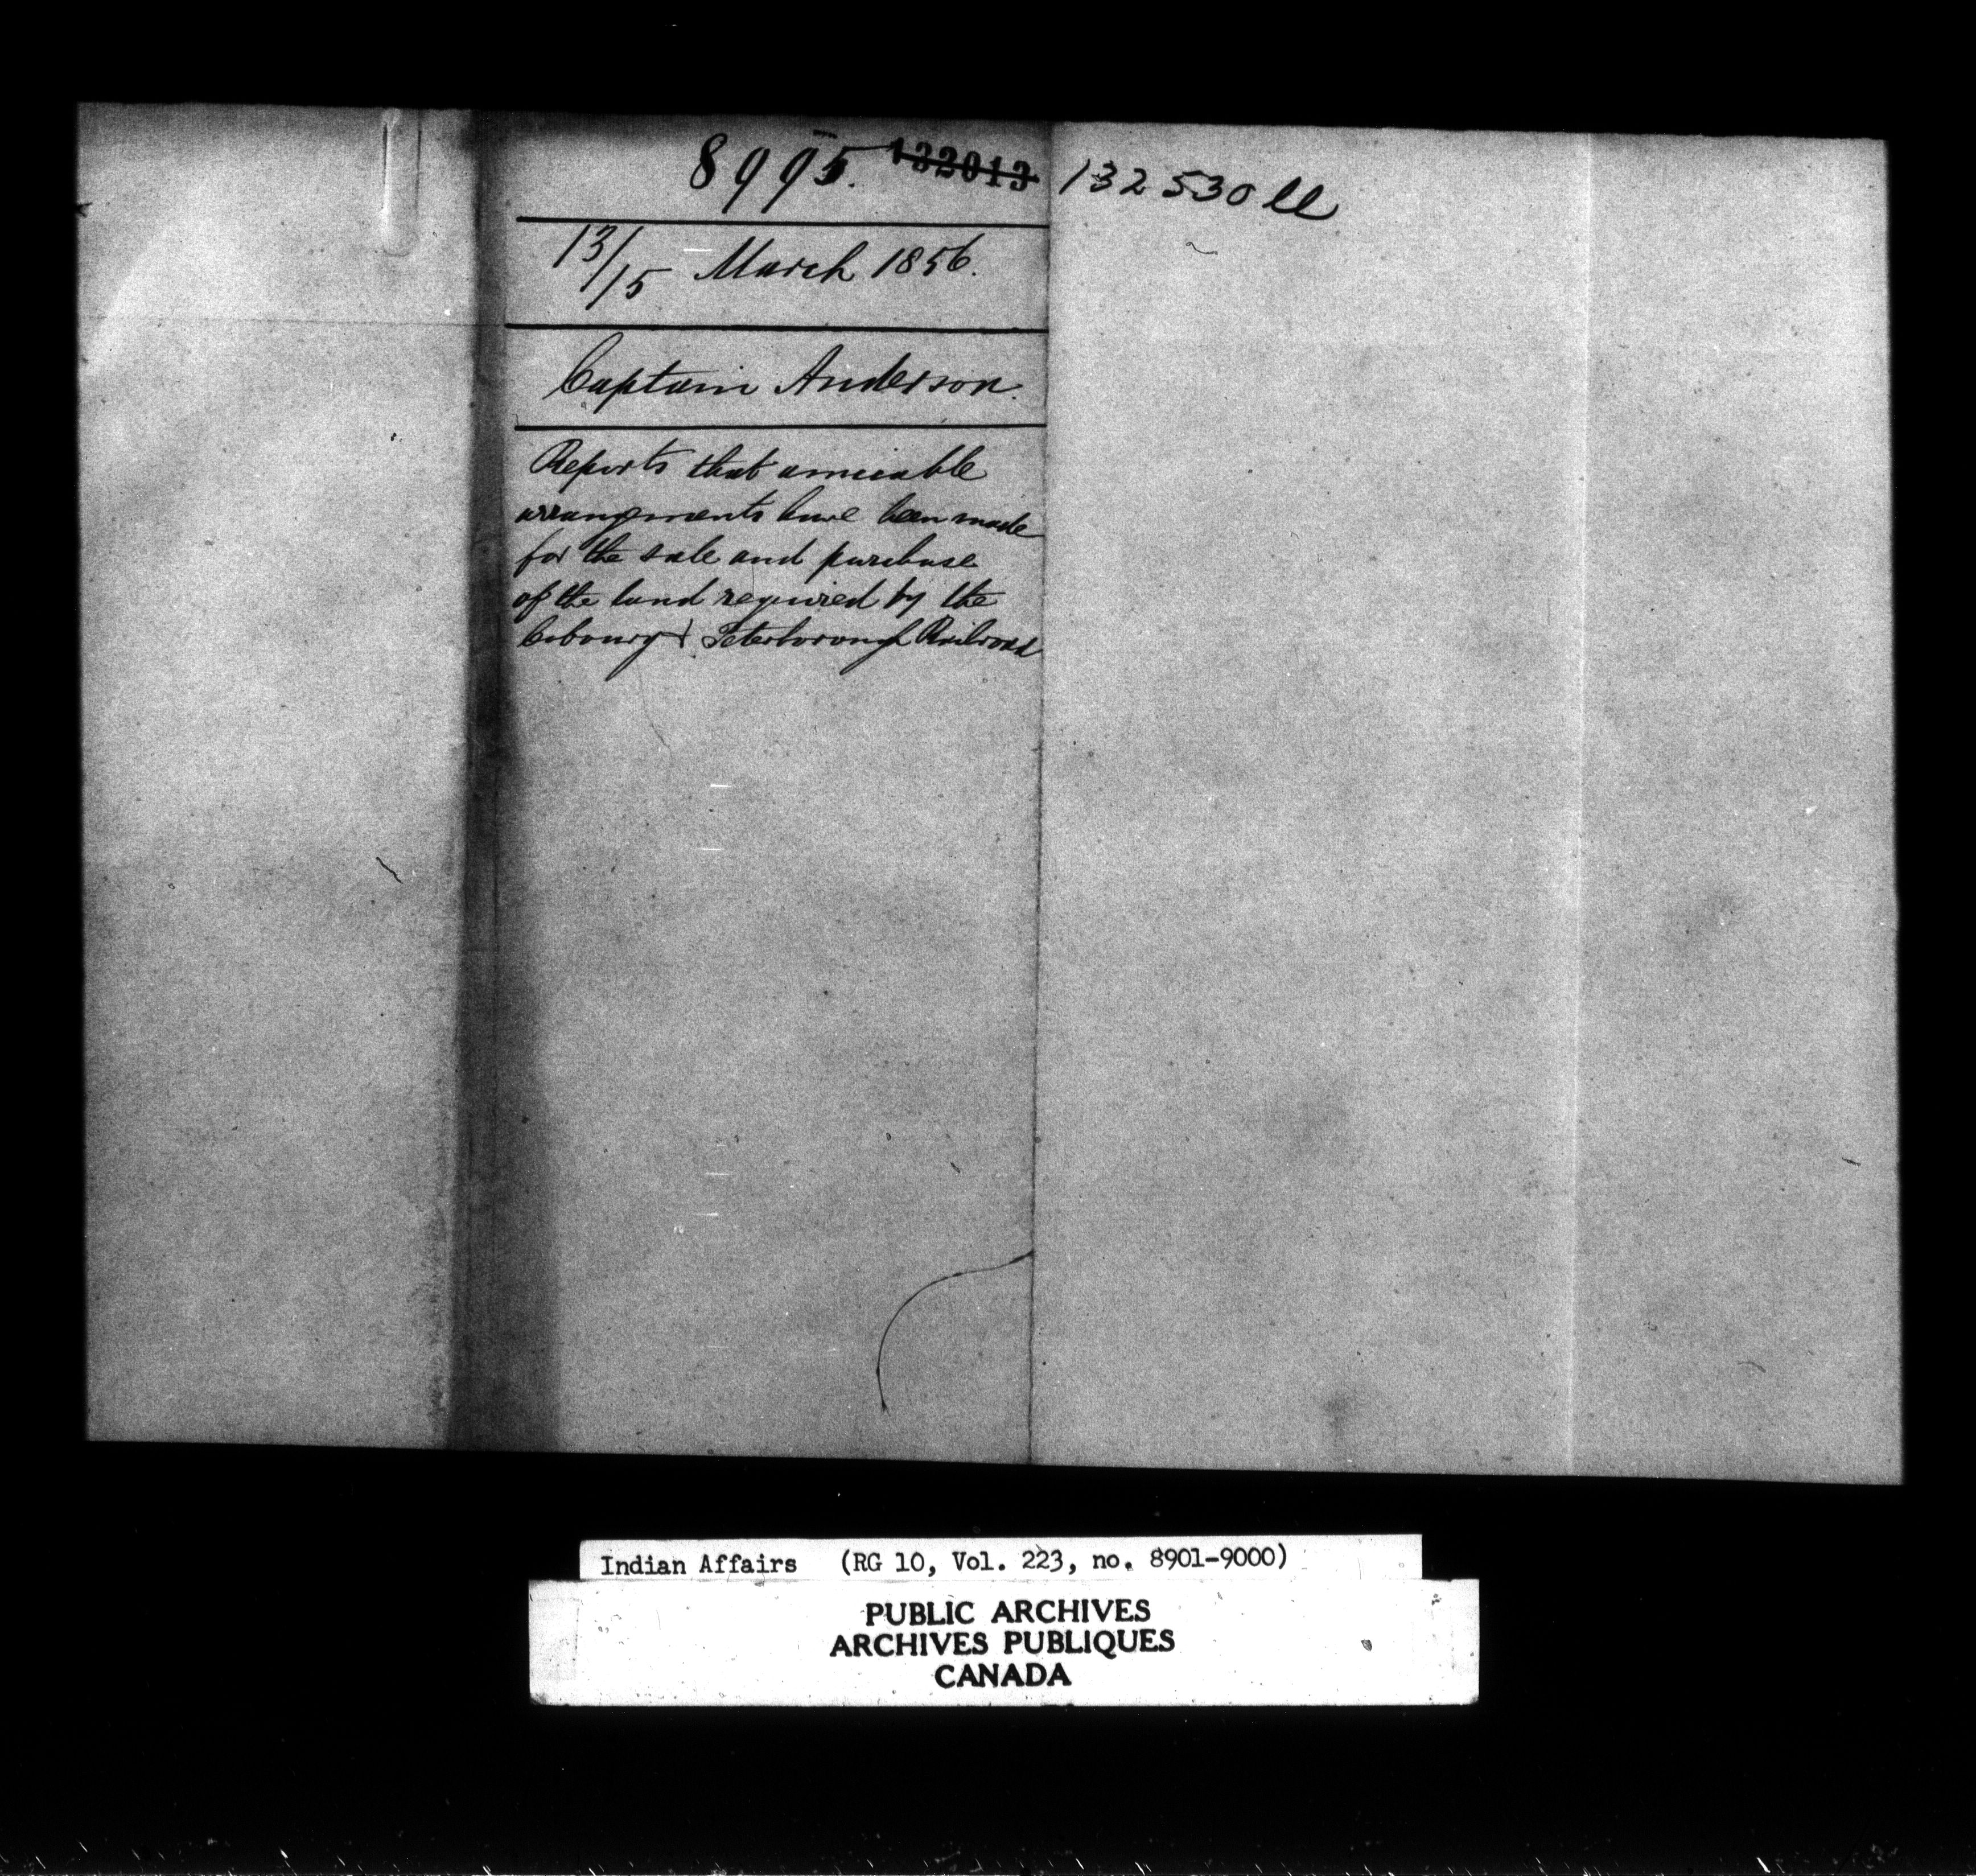 8995. 132013 132530 ll
13/15 March 1856.
Captain Anderson.
Reports that amicable
arrangements have been made
for the sale and purchase
of the land required by the
Cobourg & Peterborough Railroad
Indian Affairs (RG 10, Vol. 223, no. 8901-9000)
PUBLIC ARCHIVES
ARCHIVES PUBLIQUES
CANADA